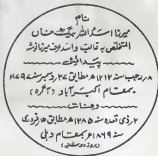 نام
میرزا اسد اللہ بیگ خاں
المتخلص بہ غالب و اسد عرف میرزا نوشہ
پیدائش
۸ رجب سنہ ۱۲۱۲ ھ مطابق ۲۷ دسمبر سنہ ۱۷۹۷ء
بمقام اکبر آباد (آگرہ)
وفات
۲ ذی قعدہ سنہ ۱۲۸۵ ھ مطابق ۱۵ فروری
سنہ ۱۸۶۹ء بمقام دہلی
(روز دوشنبہ)